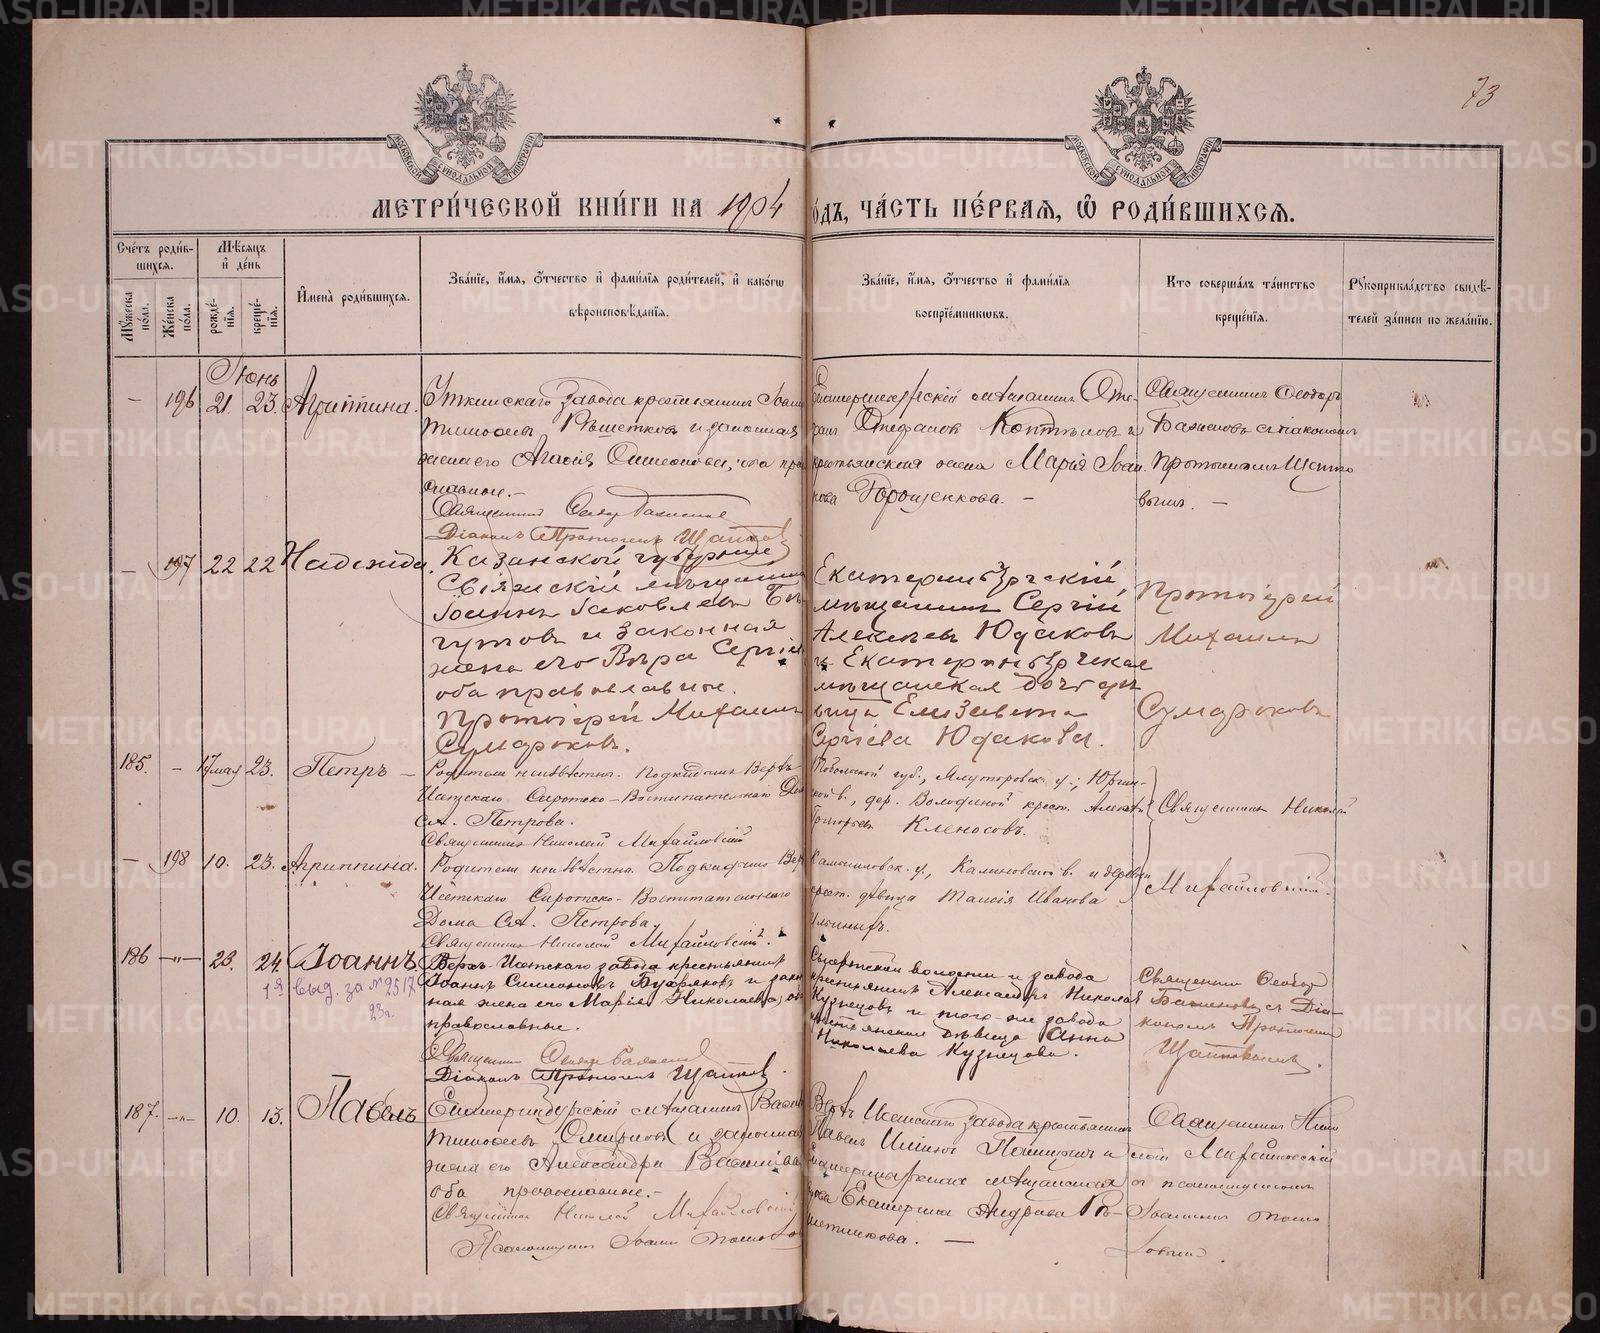 73
МЕТРИ́ЧЕСКОЙ КНИ́ГИ НА 1904 ГО́ДЪ, ЧА́СТЬ ПЕ́РВАЯ, Ѿ РОДИ́ВШИХСЯ.
Сче́тъ роди́в-
шихся.
Му́жеска по́ла.
Же́нска по́ла.
Мѣ́сяцъ
и҆ де́нь
рожде́-
нія.
креще́-
нія.
И҆мена̀ роди́вшихся.
Зва́ніе, и҆́мя, ѻ҆́тчество и҆ фами́лія роди́телей, и҆ како́гѡ
вѣроисповѣ́данія.
Зва́ніе, и҆́мя, ѻ҆́тчество и҆ фами́лія
воспріе́мникѡвъ.
Кто̀ соверша́лъ та́инство
креще́нія.
Рꙋкоприкла́дство свидѣ́-
телей за́писи по жела́нію.
Іюнь
— 196 21. 23. Агриппина.
Уткинскаго завода крестьянинъ Іоаннъ
Тимофеевъ Рѣшетковъ и законная
жена его Агафія Симеонова, оба пра
славные.—
Священникъ
Діаконъ Протогенъ Щаповъ
Екатеринбургскій мѣщанинъ Сте-
фанъ Стефановъ Коптѣловъ и
крестьянская жена Марія
Хорошенкова. —
Священникъ Ѳеодоръ
Баженовъ с діакономъ
Протогеномъ Щапо
вымъ. —
— 197 22 22 Надежда.
Казанской губерніи
Свіяжскій мѣщанинъ
Іоаннъ Іаковлевъ Бѣ-
гутовъ и законная
жена его Вѣра Сергіева
оба православные.
Протоіерей Михаилъ
Сумароковъ.
Екатеринбургскій
мѣщанинъ Сергій
Алексѣевъ Юдаковъ
и Екатеринбургская
мѣщанская дочь дѣ
вица Елизавета
Сергіева Юдакова.
Протоіерей
Михаилъ
Сумароковъ
185. — 17 мая 23. Петръ —
Родители неизвѣстны. Подкидышъ Верхъ
Исетскаго Сиротско-Воспитательнаго Дома
С.А. Петрова.
Священникъ Николай Михайловскій
Тобольской губ., Ялуторовск. у., Юргин-
ской в., дер. Володиной крест. Алексѣй
Григорьевъ Клепосовъ.
Священникъ Николай
— 198 10. 23. Агриппина.
Родители неизвѣстны. Подкидышъ Верхъ
Исетскаго Сиротско-Воспитательнаго
Дома С.А. Петрова.
Священникъ Николай Михайловскій.
Камышловск. у., Калиновской в. и деревни
крест. дѣвица Таисія Иванова
Ильиныхъ.
Михайловскій.
186 —"— 23. 24. Іоаннъ.
1я выд. за № 2517
23г.
Верхъ-Исетскаго завода крестьянинъ
Іоаннъ Симеоновъ Буфряковъ и закон
ная жена его Марія Николаева, оба
православные.
Священникъ
Діаконъ Протогенъ Щаповъ.
Сысертской волости и завода
крестьянинъ Александръ Николаевъ
Кузнецовъ и того-же завода
крестьянская дѣвица Анна
Николаева Кузнецова.
Священникъ Ѳеодоръ
Баженовъ съ Діа-
кономъ Протогеномъ
Щаповымъ.
187. —"— 10. 13. Павелъ
Екатеринбургскій мѣщанинъ Василій
Тимофеевъ Смирновъ и законная
жена его Александра Васильева
оба православные.—
Священникъ Николай Михайловскій
Псаломщикъ Іоаннъ
Верхъ Исетскаго завода крестьянинъ
Павелъ и
Екатеринбургская мѣщанская
Екатерина Андреева Рѣ-
шетникова. —
Священникъ Нико
лай Михайловскій
съ псаломщикомъ
Іоанномъ